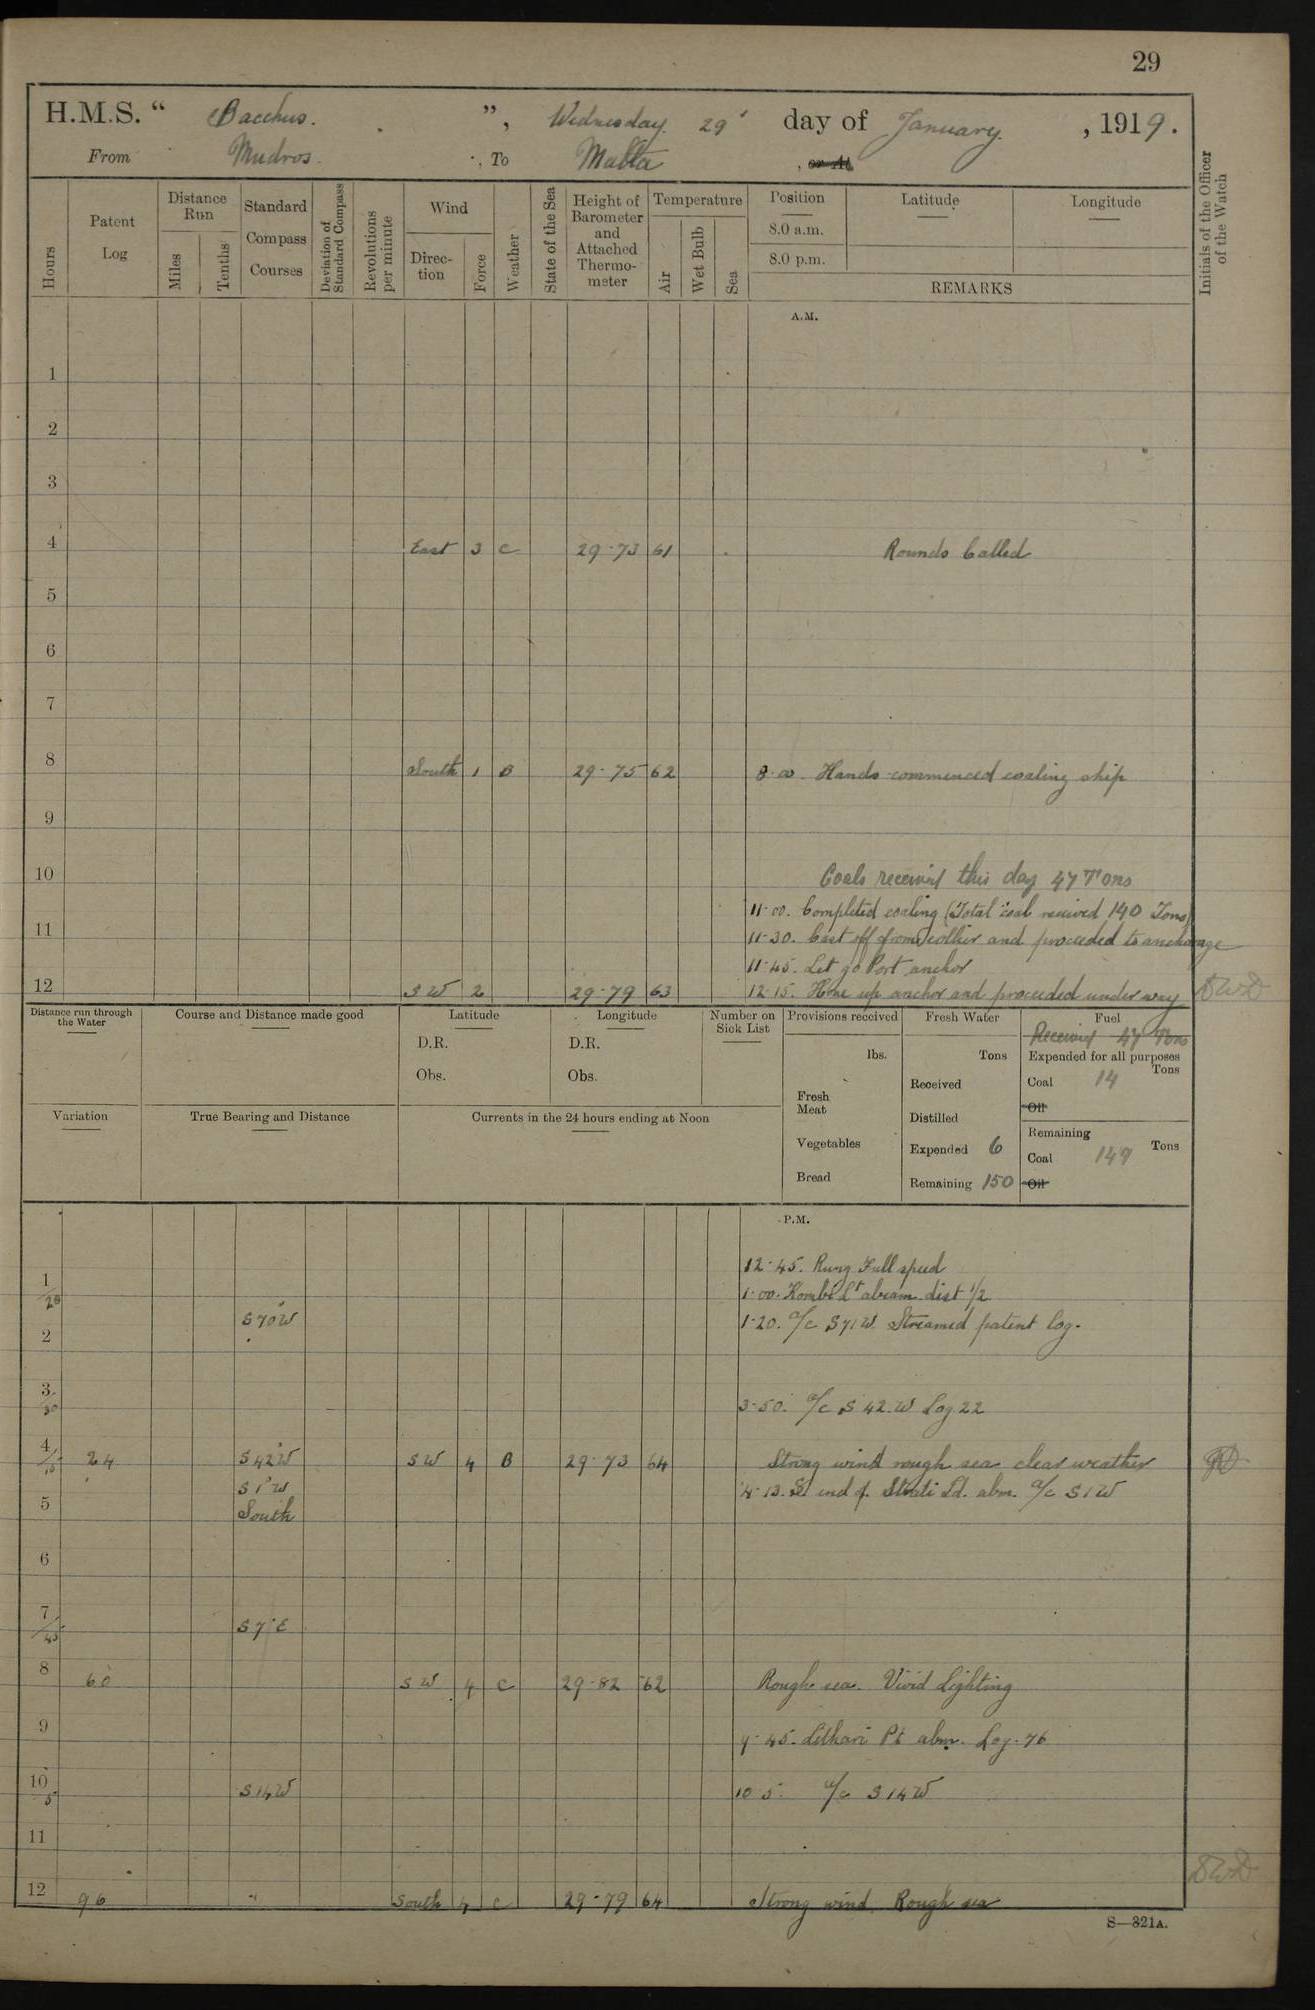 29
H.M.S. “ Bacchus. ”, Wednesday 29 day of January, 1919.
From Mudros., To Malta, or At
Hours
Patent Log
Distance Run
Miles
Tenths
Standard Compass Courses
Deviation of Standard Compass
Revolutions per minute
Wind
Direction
Force
Weather
State of the Sea
Height of Barometer and Attached Thermometer
Temperature
Air
Wet Bulb
Sea
Position
8.0 a.m.
8.0 p.m.
Latitude
Longitude
REMARKS
Initials of the Officer of the Watch
A.M.
1
2
3
4 East 3 C 29·73 61 Rounds Called
5
6
7
8 South 1 B 29·75 62 8·00. Hands commenced coaling ship
9
10 Coals received this day 47 Tons
11·00. Completed coaling (Total coal received 140 Tons)
11 11·30. Cast off from collier and proceeded to anchorage
11·45. Let go Port anchor
12 SW 2 29·79 63 12·15. Hove up anchor and proceeded under way
Distance run through the Water
Course and Distance made good
Latitude
D.R.
Obs.
Longitude
D.R.
Obs.
Number on Sick List
Provisions received
lbs.
Fresh Meat
Vegetables
Bread
Fresh Water
Tons
Received
Distilled
Expended 6
Remaining 150
Fuel
Received 47 Tons
Expended for all purposes
Tons
Coal 14
Oil
Remaining
Coal 149 Tons
Oil
Variation
True Bearing and Distance
Currents in the 24 hours ending at Noon
P.M.
12·45. Rung Full speed
1 1·00. Kombi Lt abeam dist 1/2
/20 S70°W 1·20. a/c S71W Streamed patent log.
2
3
/50 3·50. a/c S 42.W Log 22
4 24 S42°W SW 4 B 29·73 64 Strong wind rough sea clear weather
/13 S1°W 4·13. S. end of Strati Id. abm. a/c S1W
5 South
6
7
/45 S7°E
8 60 SW 4 C 29·82 62 Rough sea. Vivid Lighting
9 9·45. Lithari Pt abm. Log. 76
10
/5 S14W 10·5. a/c S14W
11
12 96 " South 4 C 29·79 64 Strong wind. Rough sea
S—321A.